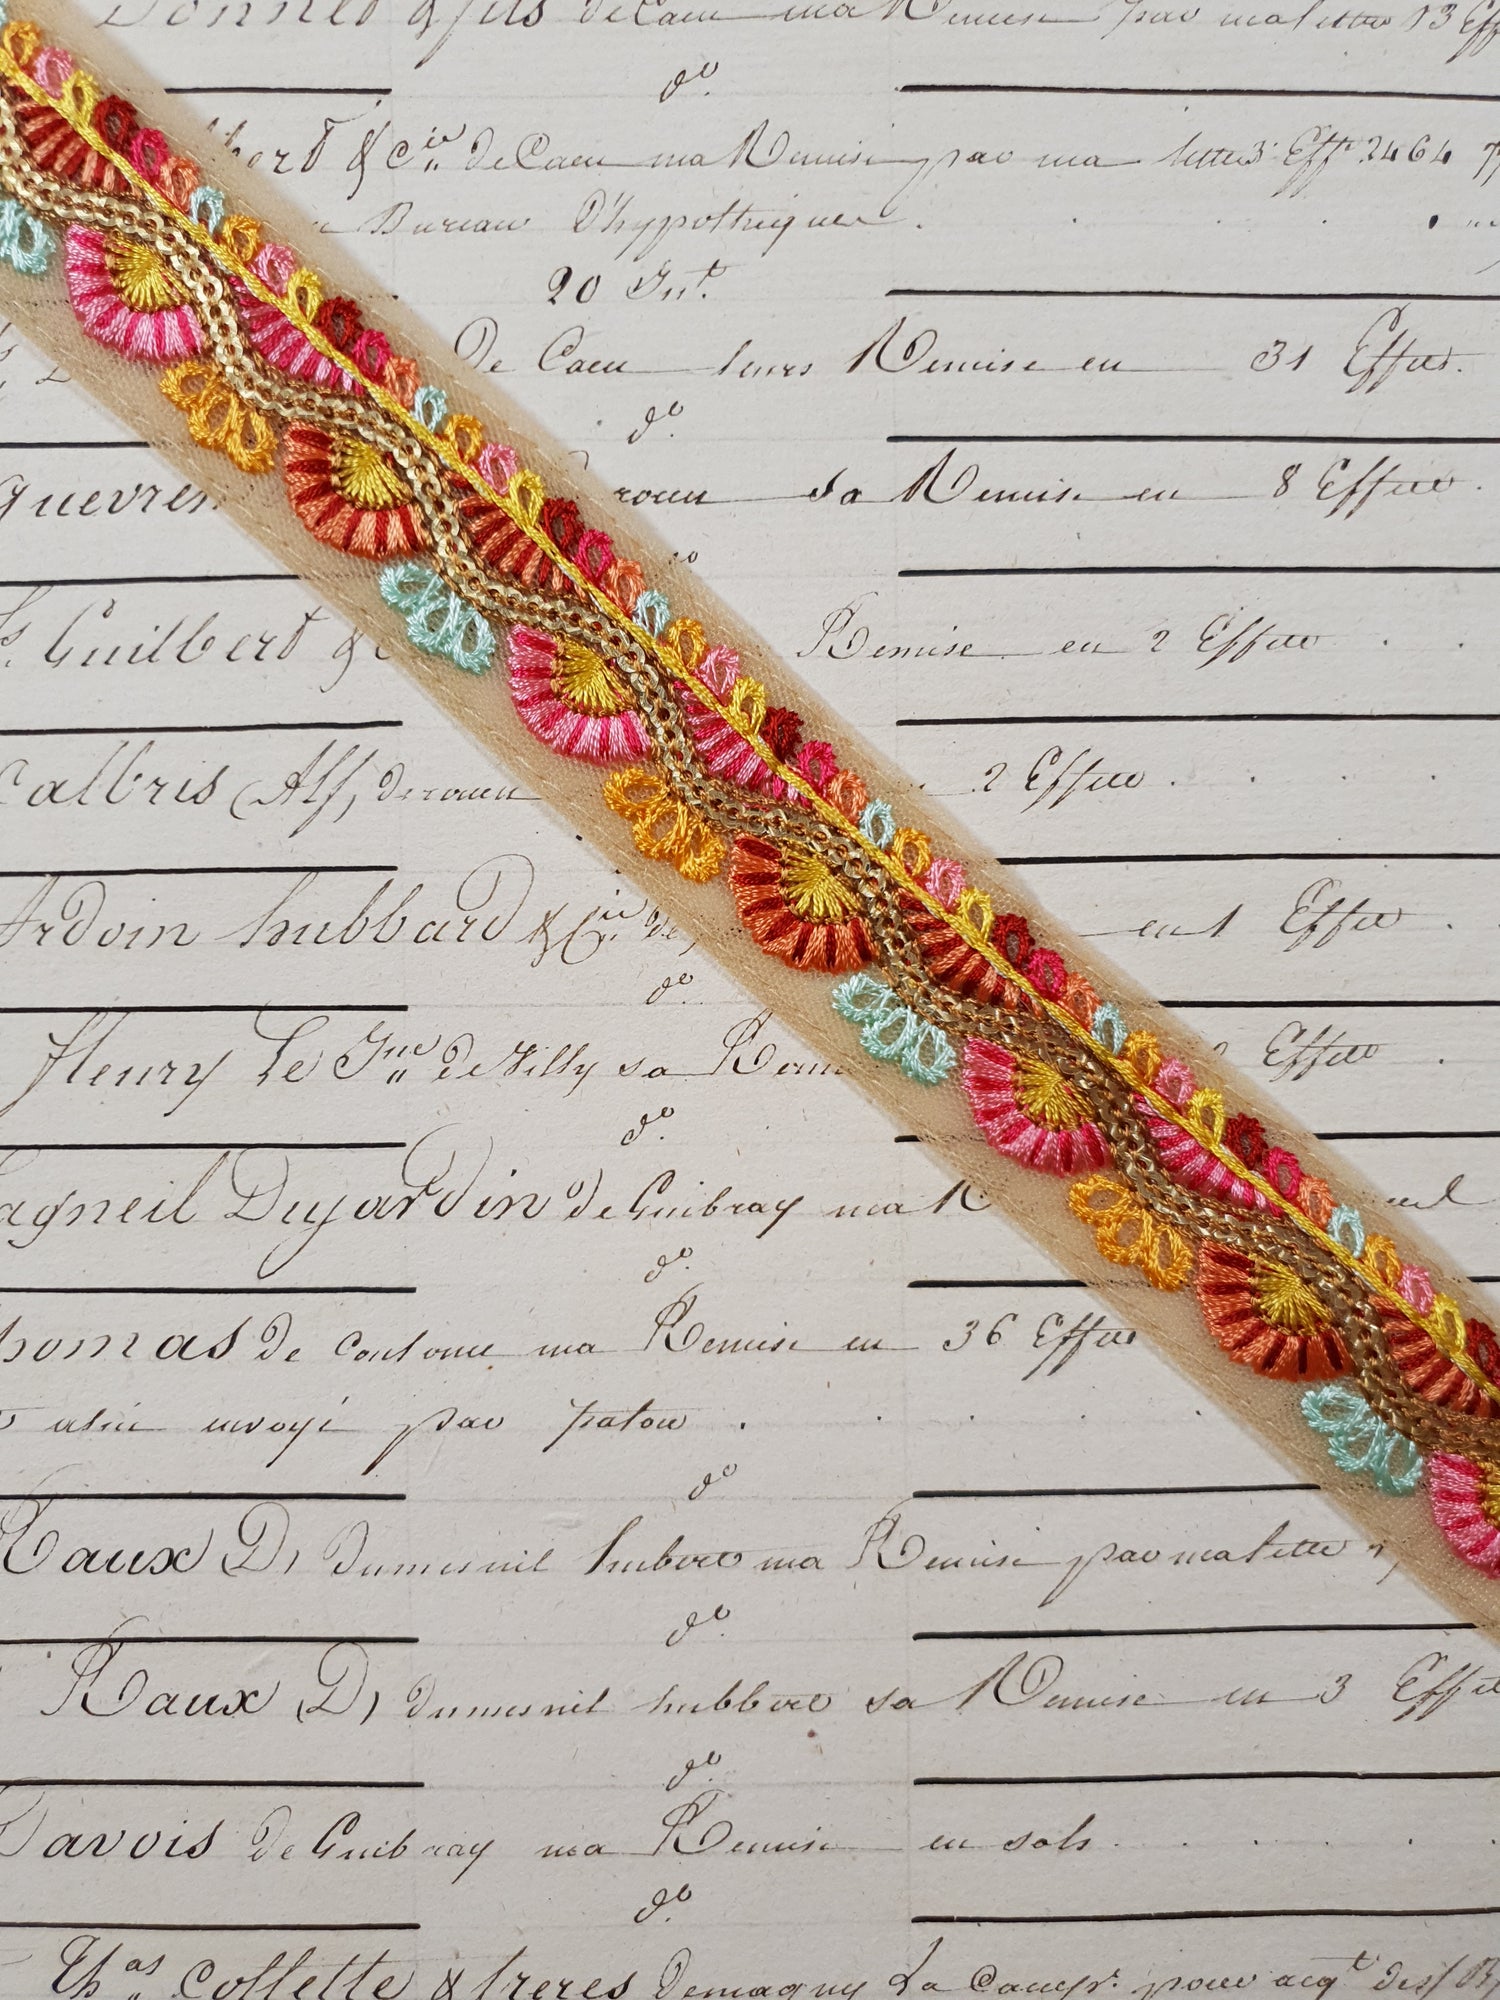 & fils de Caen ma Remise par ma lettre 13 Eff
d°.
& Cie de Caen ma Remise par ma lettre 3 Effts 2464
Bureau D'hypothèques.
20 Jnt.
De Caen leurs Remise en 31 Effets.
d°.
rouen sa Remise en 8 Effets.
Guilbert & Remise en 2 Effets
Calbris (Alf) de rouen 2 Effets
Ardoin hubbard & Cie de en 1 Effet
d°.
fleury Le Jne de Tilly sa Remise Effets
d°.
Dujardin de Guibray ma R
d°.
homas de Coutance ma Remise en 36 Effets
envoyé par
d°
Raux D, dumesnil hubert ma Remise par ma lettre
d°.
Raux D, dumesnil hubbert sa Remise en 3 Effets
d°.
Davois de Guibray ma Remise en sols
d°.
Thas Collette & freres De magny La Camp. pour acqt des